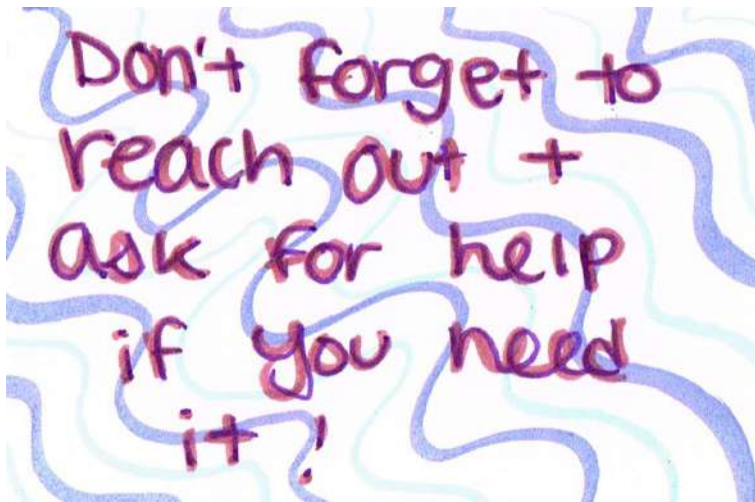 Don't forget to
reach out +
ask for help
if you need
it!